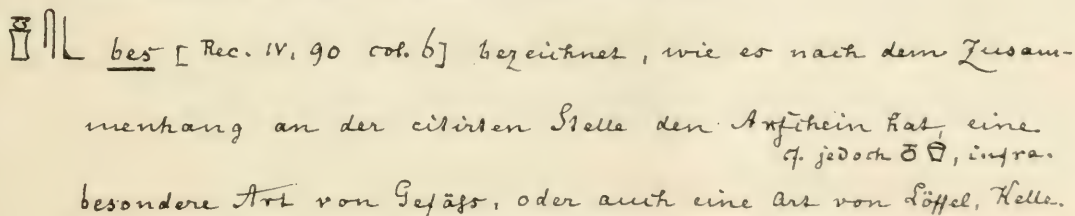 bes [Rec. IV, 90 col. b] bezeichnet, wie es nach dem Zusam-
menhang an der citirten Stelle den Anschein hat, eine
cf. jedoch 𓏌, infra.
besondere Art von Gefäss, oder auch eine Art von Löffel, Kelle.